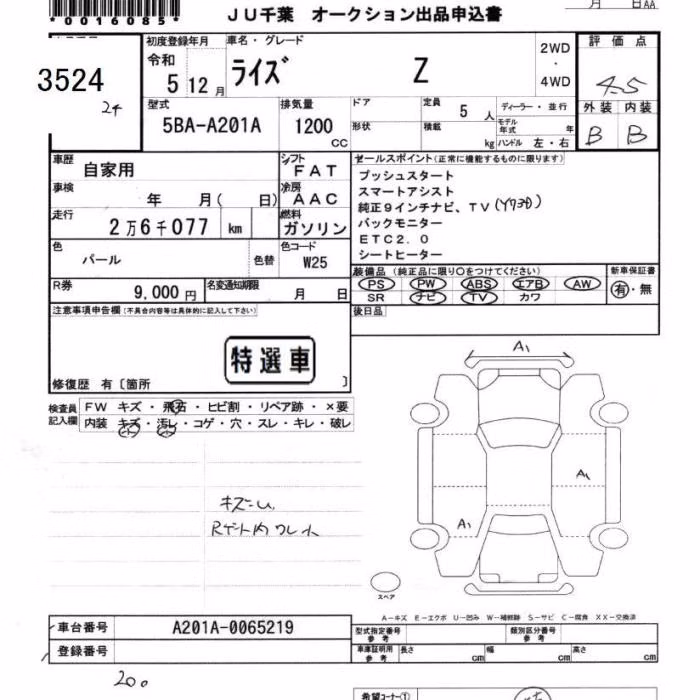 *0016085*
JU千葉 オークション出品申込書
月 日AA
3524
24
初度登録年月
令和
5 12月
車名・グレード
ライズ Z
2WD
・
4WD
評価点
4.5
外装 内装
B B
型式
5BA-A201A
排気量
1200 CC
ドア
形状
定員 5 人
積載 kg
ディーラー・並行
モデル年式 年
ハンドル 左・右
車歴
自家用
車検
年 月( 日)
走行
2万6千077 km
色
パール
色替
シフト
FAT
冷房
AAC
燃料
ガソリン
色コード
W25
セールスポイント(正常に機能するものに限ります)
プッシュスタート
スマートアシスト
純正9インチナビ、TV
バックモニター
ETC2.0
シートヒーター
R券
9,000円
名変通知期限
月 日
装備品 (純正品に限り○をつけてください)
PS PW ABS エアB AW
SR ナビ TV カワ
新車保証書
有・無
後日品
注意事項申告欄(不具合内容等は具体的に記入して下さい)
特選車
修復歴 有〔箇所 〕
検査員記入欄
FW キズ・飛石・ヒビ割・リペア跡・×要
内装 キズ・汚レ・コゲ・穴・スレ・キレ・破レ
A1
A1
A1
スペア
A-キズ E-エクボ U-凹み W-補修跡 S-サビ C-腐食 XX-交換済
車台番号 A201A-0065219
登録番号
型式指定番号 参考
類別区分番号 参考
車庫証明用 参考
長さ cm 幅 cm 高さ cm
希望コーナー①